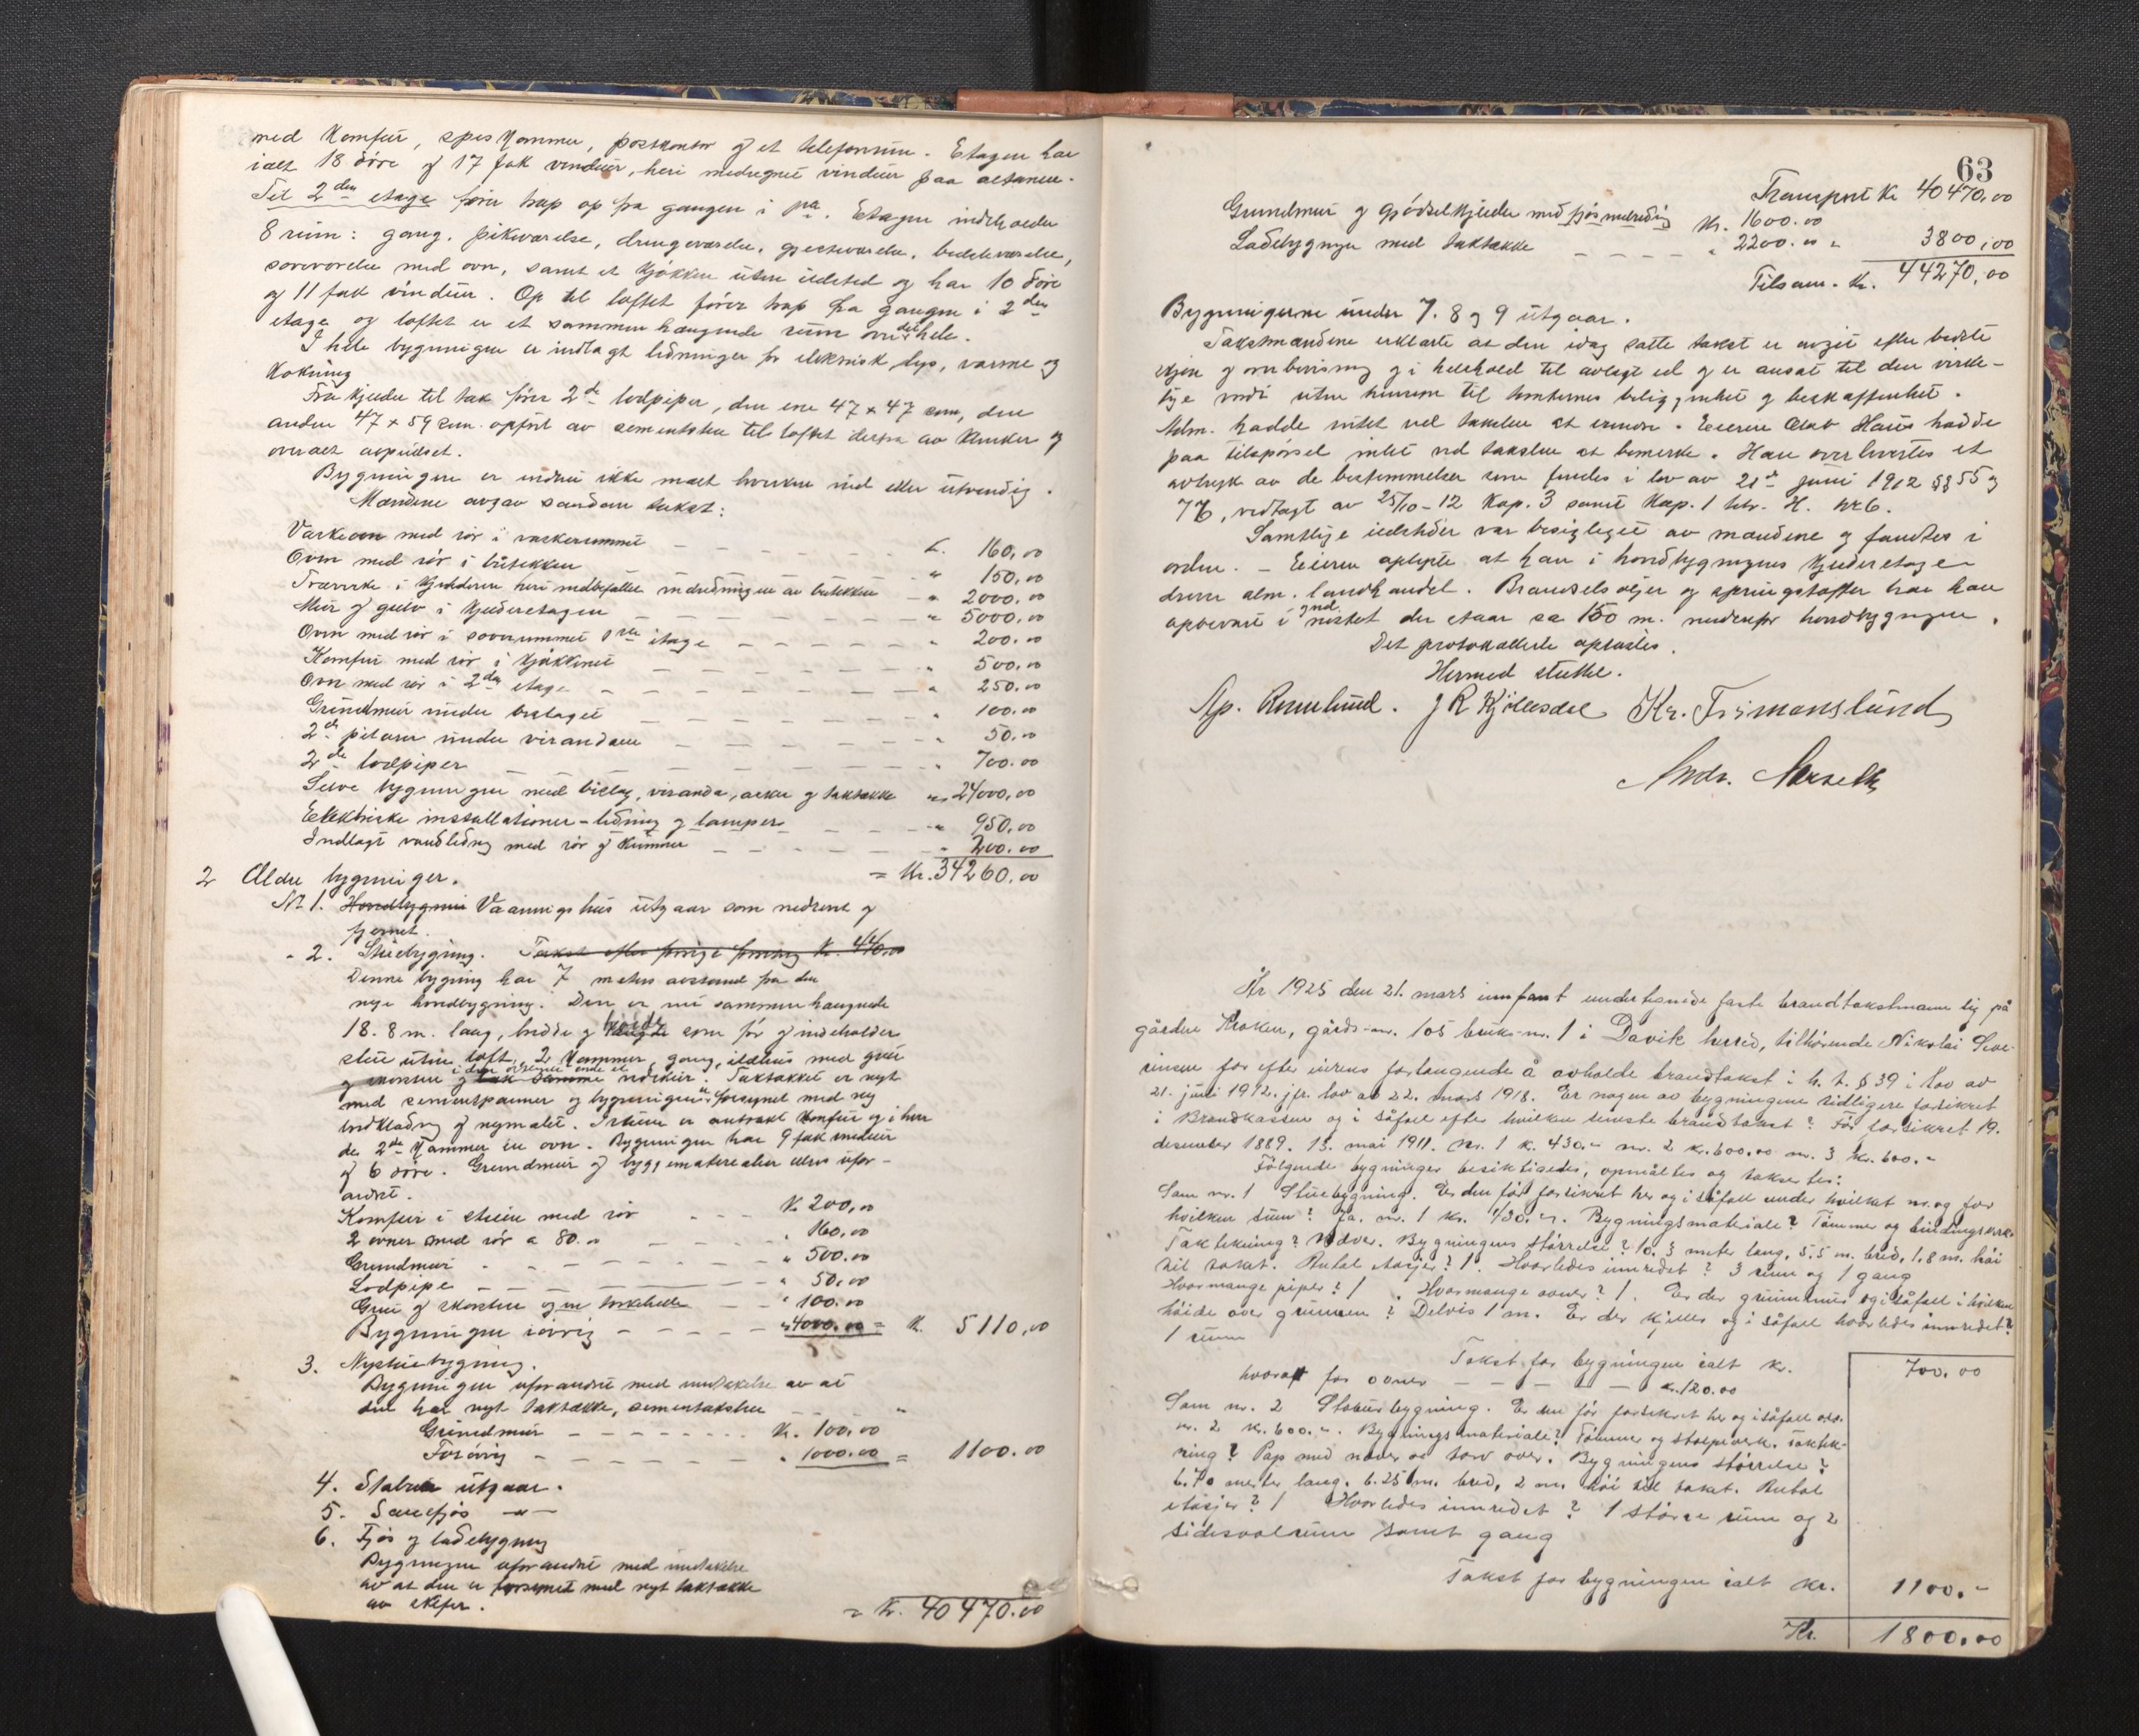 med Komfur, spiskammer, postkontor og et telefonrum. Etagen har
ialt 18 döre og 17 fak vinduer, heri medregnet vinduer paa altanen.
Til 2den etage förer trap op fra gangen i 1ste. Etagen indeholder
8 rum: gang, pikeværelse, drengeværelse, gjesteværelse, bedsteværelse,
soveværelse med ovn, samt et kjökken uten ildsted og har 10 döre
og 11 fak vinduer. Op til loftet förer trap fra gangen i 2den
etage og loftet er et sammenhængende rum over det hele.
I hele bygningen er indlagt ledninger for elektrisk lys, varme og
kokning
Fra kjelder til tak förer 2de lodpiper, den ene 47 x 47 cm, den
anden 47 x 59 cm. opfört av sementsten til loftet derfra av klinker og
overalt avpudset.
Bygningen er endnu ikke malt hverken ind eller utvendig.
Mændene avgav saadan takst:
Vaskeovn med rör i vaskerummet - - - - - kr. 160,00
Ovn med rör i butikken " 150,00
Træverke i kjelderen heri medbefattet indredningen av butikken - " 2000.00
Mur og gulv i kjelderetagen " 5000,00
Ovn med rör i soverummet 1ste etage - - - - " 200.00
Komfur med rör i kjökkenet - - - - " 500.00
Ovn med rör i 2den etage - - - - " 250.00
Grundmur under bislaget - - - - " 100.00
2de pilarer under verandaen - - - - " 50.00
2de lodpiper - - - - " 700.00
Selve bygningen med bislag, veranda, arker og taktække " 24000,00
Elektriske installationer - ledning og lamper - - - " 950.00
Indlagt vandledning med rör og kummer - - - - " 200.00
= Kr. 34260.00
2 Ældre bygninger.
Nr. 1. Hovedbygning Vaaningshus utgaar som nedrevet og
fjernet.
- 2. Stuebygning. Takst efter forrige forretning kr. 440.00
Denne bygning har 7 meters avstand fra den
nye hovedbygning. Den er nu sammenhængende
18.8 m. lang, bredde og höide som för og indeholder
stue uten loft, 2 kammer, gang, ildhus med grue
og skorsten og i den östenden ende et tak samme vedskur. Taktækket er nyt
med sementpanner og bygningen forsynet med ny
indklædning og nymalet. I stuen er anbrakt komfur og i hver
de 2de kammer en ovn. Bygningen har 9 fak vinduer
og 6 döre. Grundmur og byggematerialer ellers ufor-
andret.
Komfur i stuen med rör - - - kr. 200,00
2 ovner med rör a 80.00 - - - " 160,00
Grundmur - - - - " 500.00
Lodpipe - - - " 50,00
Grue og skorsten og en törkehelle - - " 100.00
Bygningen iövrig - - - - " 4000.00 = kr. 5110,00
3. Nystuebygning.
Bygningen uforandret med undtakelse av at
den har nyt taktække, sementaksten
Grundmur - - - - - - kr. 100,00
Forövrig - - - - - - " 1000.00 = 1100.00
4. Stabur utgaar.
5. Sauefjös —"—
6. Fjös og ladebygning
Bygningen uforandret med undtakelse
av at den er forsynet med nyt taktække
av skifer.
= Kr. 40470.00
63
Transport Kr 40470,00
Grundmur og gjödselkjelder med fjösindredning Kr. 1600.00
Ladebygningen med taktække - - - - " 2200.00 = 3800,00
Tilsam. Kr. 44270,00
Bygningerne under 7. 8 og 9 utgaar.
Takstmændene erklærte at den idag satte takst er avgit efter bedste
skjön og overbevisning og i henhold til avlagt ed og er ansat til den virke-
lige værdi uten hensyn til tomternes beliggenhet og beskaffenhet.
Mdm. hadde intet ved taksten at erindre. Eieren Olav Haus hadde
paa tilspörsel intet ved taksten at bemerke. Han overlevertes et
avtryk av de bestemmelser som findes i lov av 21de juni 1912 §§ 55 og
76, vedtagt av 25/10-12 Kap. 3 samt Kap. 1 litr. H. nr 6.
Samtlige ildsteder var besigtiget av mændene og fandtes i
orden. - Eieren oplyste at han i hovedbygningens kjelderetage
driver alm. landhandel. Brændselsoljer og springstoffer har han
opbevaret i et nöstet der staar ca 150 m. nedenfor hovedbygningen.
Det protokollerte oplæstes.
Hermed sluttet.
Ap. Rennelund. J R Hjellesdal Kr. Frimanslund
Andr. Maurseth
År 1925 den 21. mars innfant undertegnede faste brandtakstmenn sig på
gården Kroken, gårds-nr. 105 bruks-nr. 1 i Davik herred, tilhörende Nikolai Seve-
rinsen for efter eierens forlangende å avholde brandtakst i h. t. § 39 i lov av
21. juni 1912. jfr. lov av 22. mars 1918. Er nogen av bygningene tidligere forsikret
i Brandkassen og i såfall efter hvilken seneste brandtakst? Før forsikret 19.
desember 1889. 13. mai 1911. Nr. 1 k. 430.- nr. 2 kr. 600.00 nr. 3 kr. 600.-
Følgende bygninger besiktigedes, opmåltes og taksertes:
Som nr. 1 Stuebygning. Er den før forsikret her og i såfall under hvilket nr. og for
hvilken sum? Ja. nr. 1 kr. 430.-. Bygningsmateriale? Tømmer og bindingsverk
Taktekning? Næver. Bygningens størrelse? 10.3 meter lang, 5.5 m. bred, 1.8 m. høi
til taket. Antal etasjer? 1. Hvorledes innredet? 3 rum og 1 gang
Hvormange piper? 1. Hvormange ovner? 1. Er der grunnmur og i såfall i hvilken
höide over grunnen? Delvis 1 m. Er der kjeller og i såfall hvorledes innredet?
1 rum
Takst for bygningen ialt kr. 700.00
hvorav for ovner - - - - - kr. 120.00
Som nr. 2 Stabursbygning. Er den før forsikret her og i såfall osv.
nr. 2 kr. 600.-. Bygningsmateriale? Tømmer og stolpeverk. Taktek-
ning? Pap med never og torv over. Bygningens størrelse?
6.70 meter lang, 6.25 m. bred, 2 m. høi til taket. Antal
etasjer? 1 Hvorledes innredet? 1 større rum og 2
sidesvalrum samt gang
Takst for bygningen ialt kr. 1100.-
Kr. 1800.00